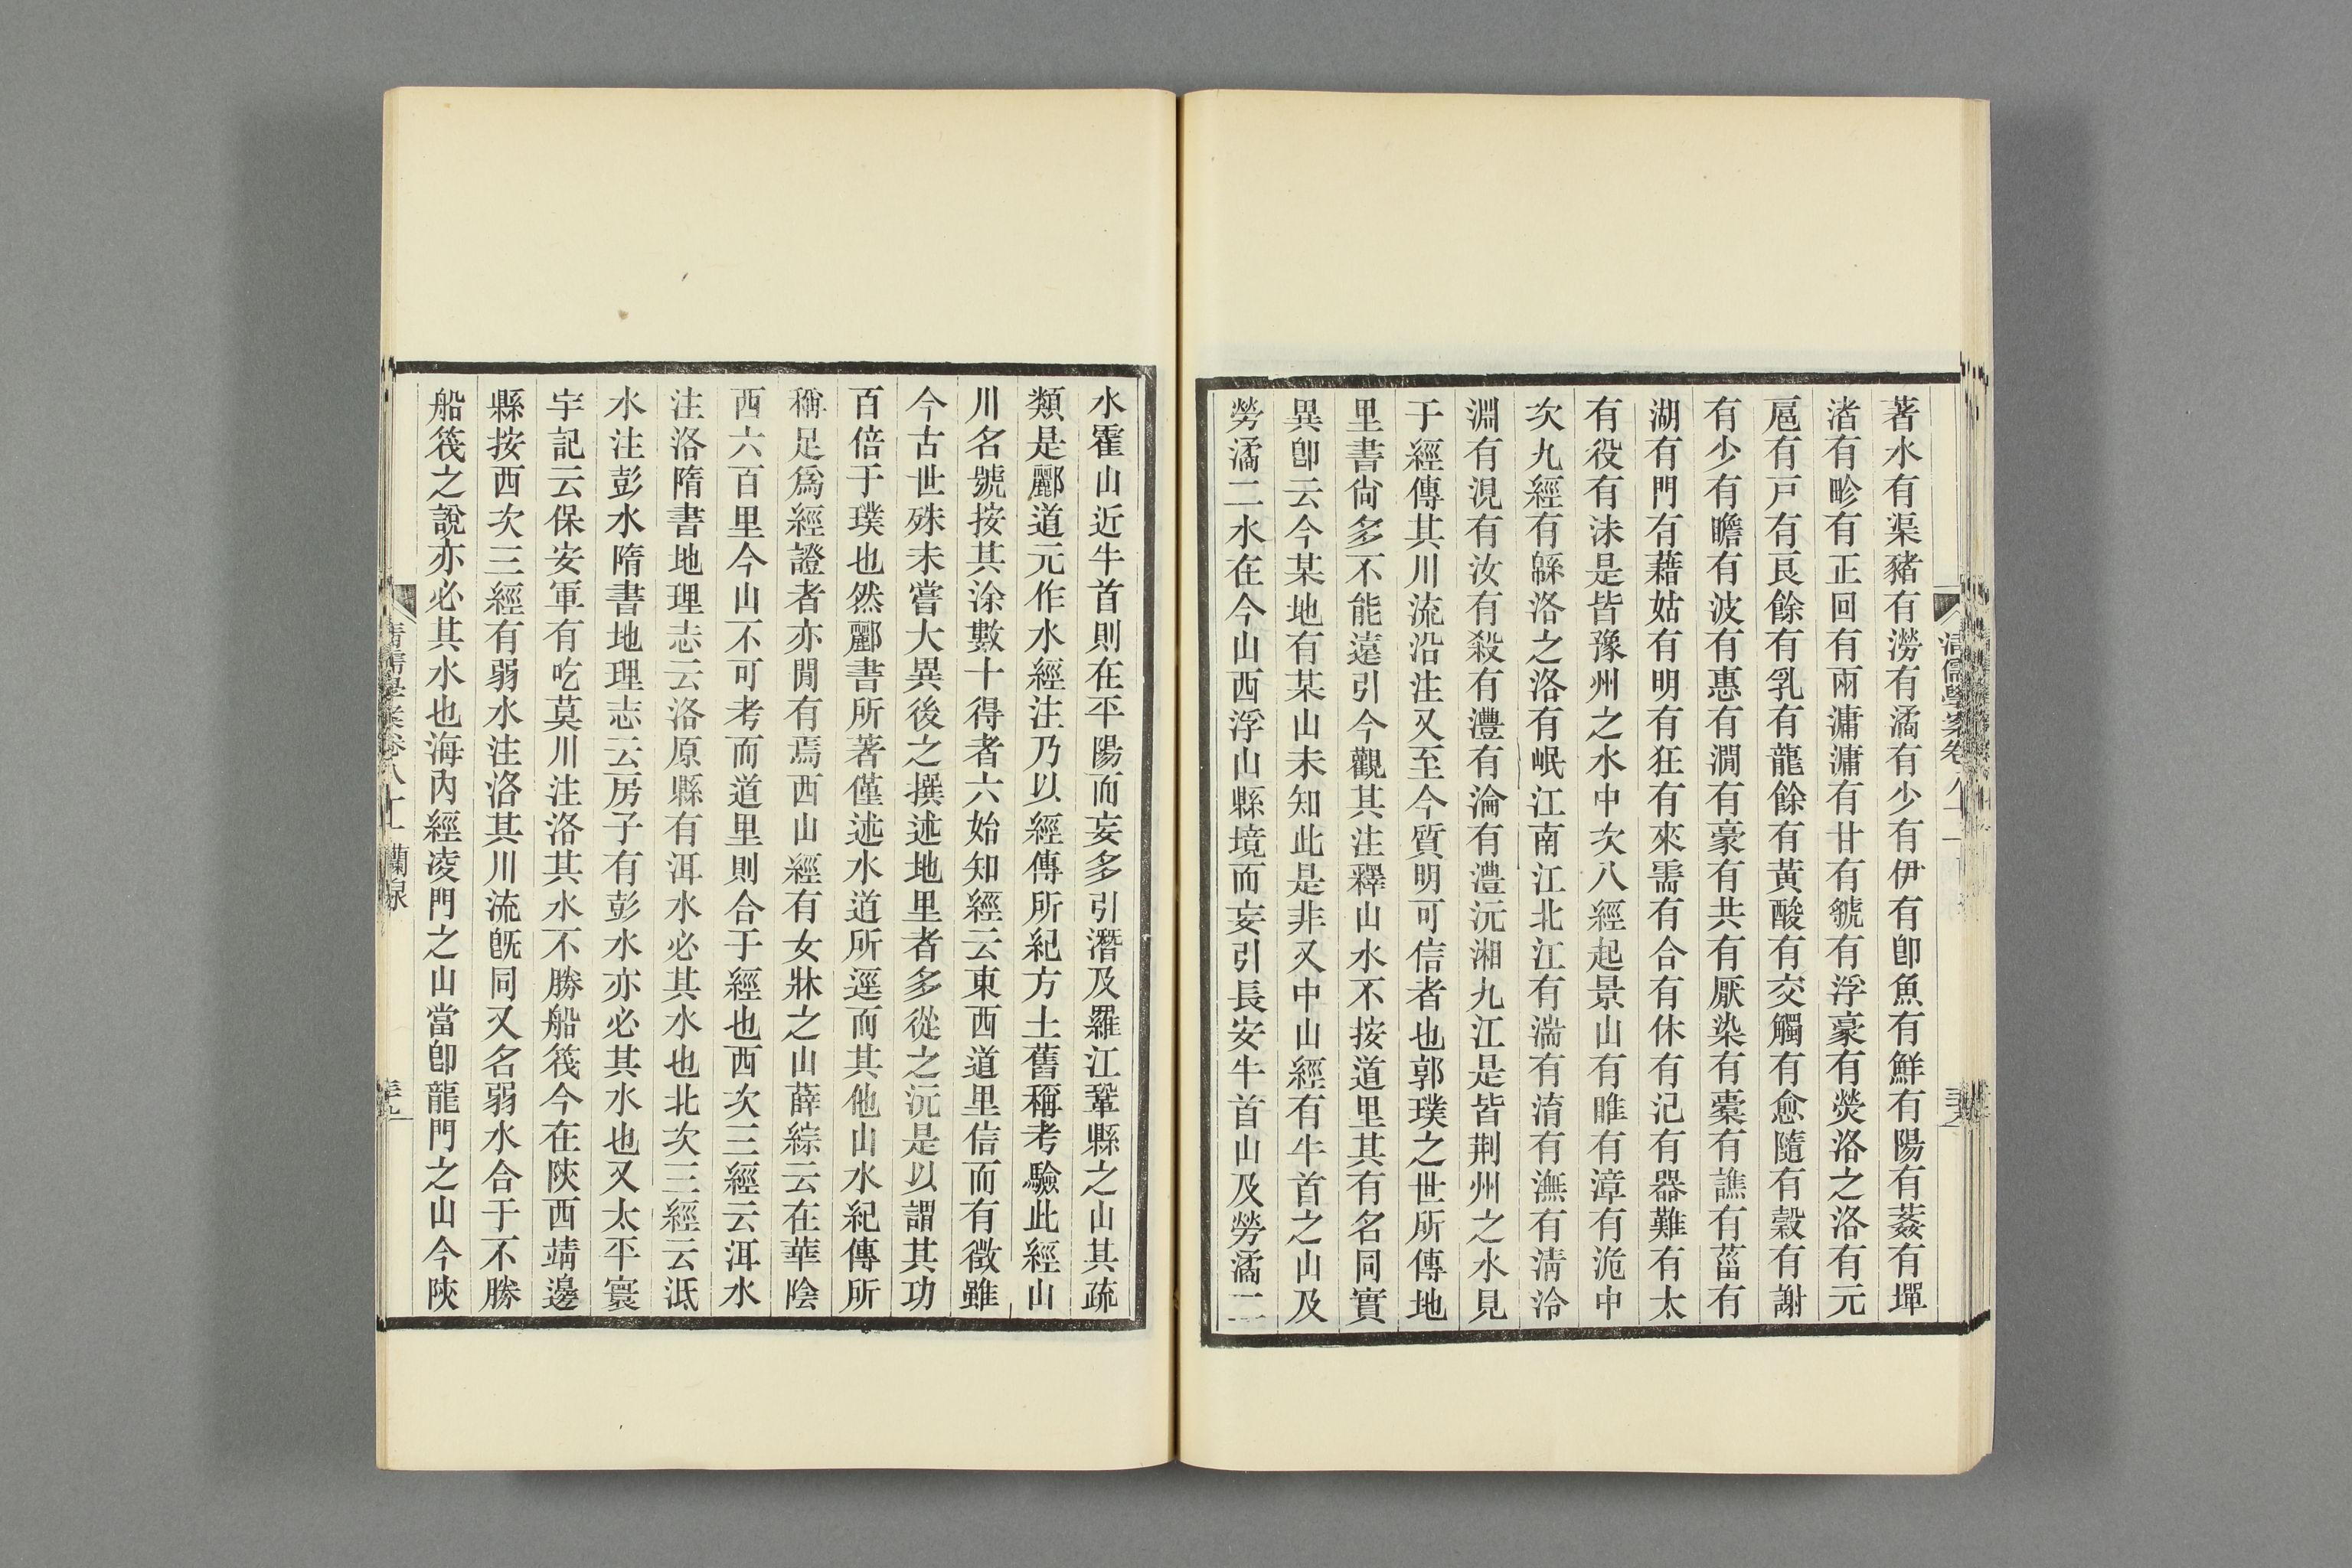 著水有渠豬有澇有潏有少有伊有卽魚有鮮有陽有葌有墠
渚有畛有正回有兩滽滽有甘有虢有浮豪有熒洛之洛有元
扈有戸有良餘有乳有龍餘有黃酸有交觸有愈隨有穀有謝
有少有瞻有波有惠有澗有豪有共有厭染有橐有譙有菑有
湖有門有藉姑有明有狂有來需有合有休有汜有器難有太
有役有沬是皆豫州之水中次八經起景山有睢有漳有洈中
次九經有緜洛之洛有岷江南江北江有湍有淯有潕有淸泠
淵有涀有汝有殺有灃有淪有澧沅湘九江是皆荆州之水見
于經傳其川流沿注又至今質明可信者也郭璞之世所傳地
里書尙多不能遠引今觀其注釋山水不按道里其有名同實
異卽云今某地有某山未知此是非又中山經有牛首之山及
勞潏二水在今山西浮山縣境而妄引長安牛首山及勞潏二
清儒學案卷八十一
水霍山近牛首則在平陽而妄多引潛及羅江鞏縣之山其疏
類是酈道元作水經注乃以經傳所紀方土舊稱考驗此經山
川名號按其涂數十得者六始知經云東西道里信而有徵雖
今古世殊未嘗大異後之撰述地里者多從之沅是以謂其功
百倍于璞也然酈書所著僅述水道所逕而其他山水紀傳所
稱足爲經證者亦閒有焉西山經有女牀之山薛綜云在華陰
西六百里今山不可考而道里則合于經也西次三經云洱水
注洛隋書地理志云洛原縣有洱水必其水也北次三經云泜
水注彭水隋書地理志云房子有彭水亦必其水也又太平寰
宇記云保安軍有吃莫川注洛其水不勝船筏今在陝西靖邊
縣按西次三經有弱水注洛其川流旣同又名弱水合于不勝
船筏之說亦必其水也海內經凌門之山當卽龍門之山今陝
清儒學案卷八十一 蘭泉